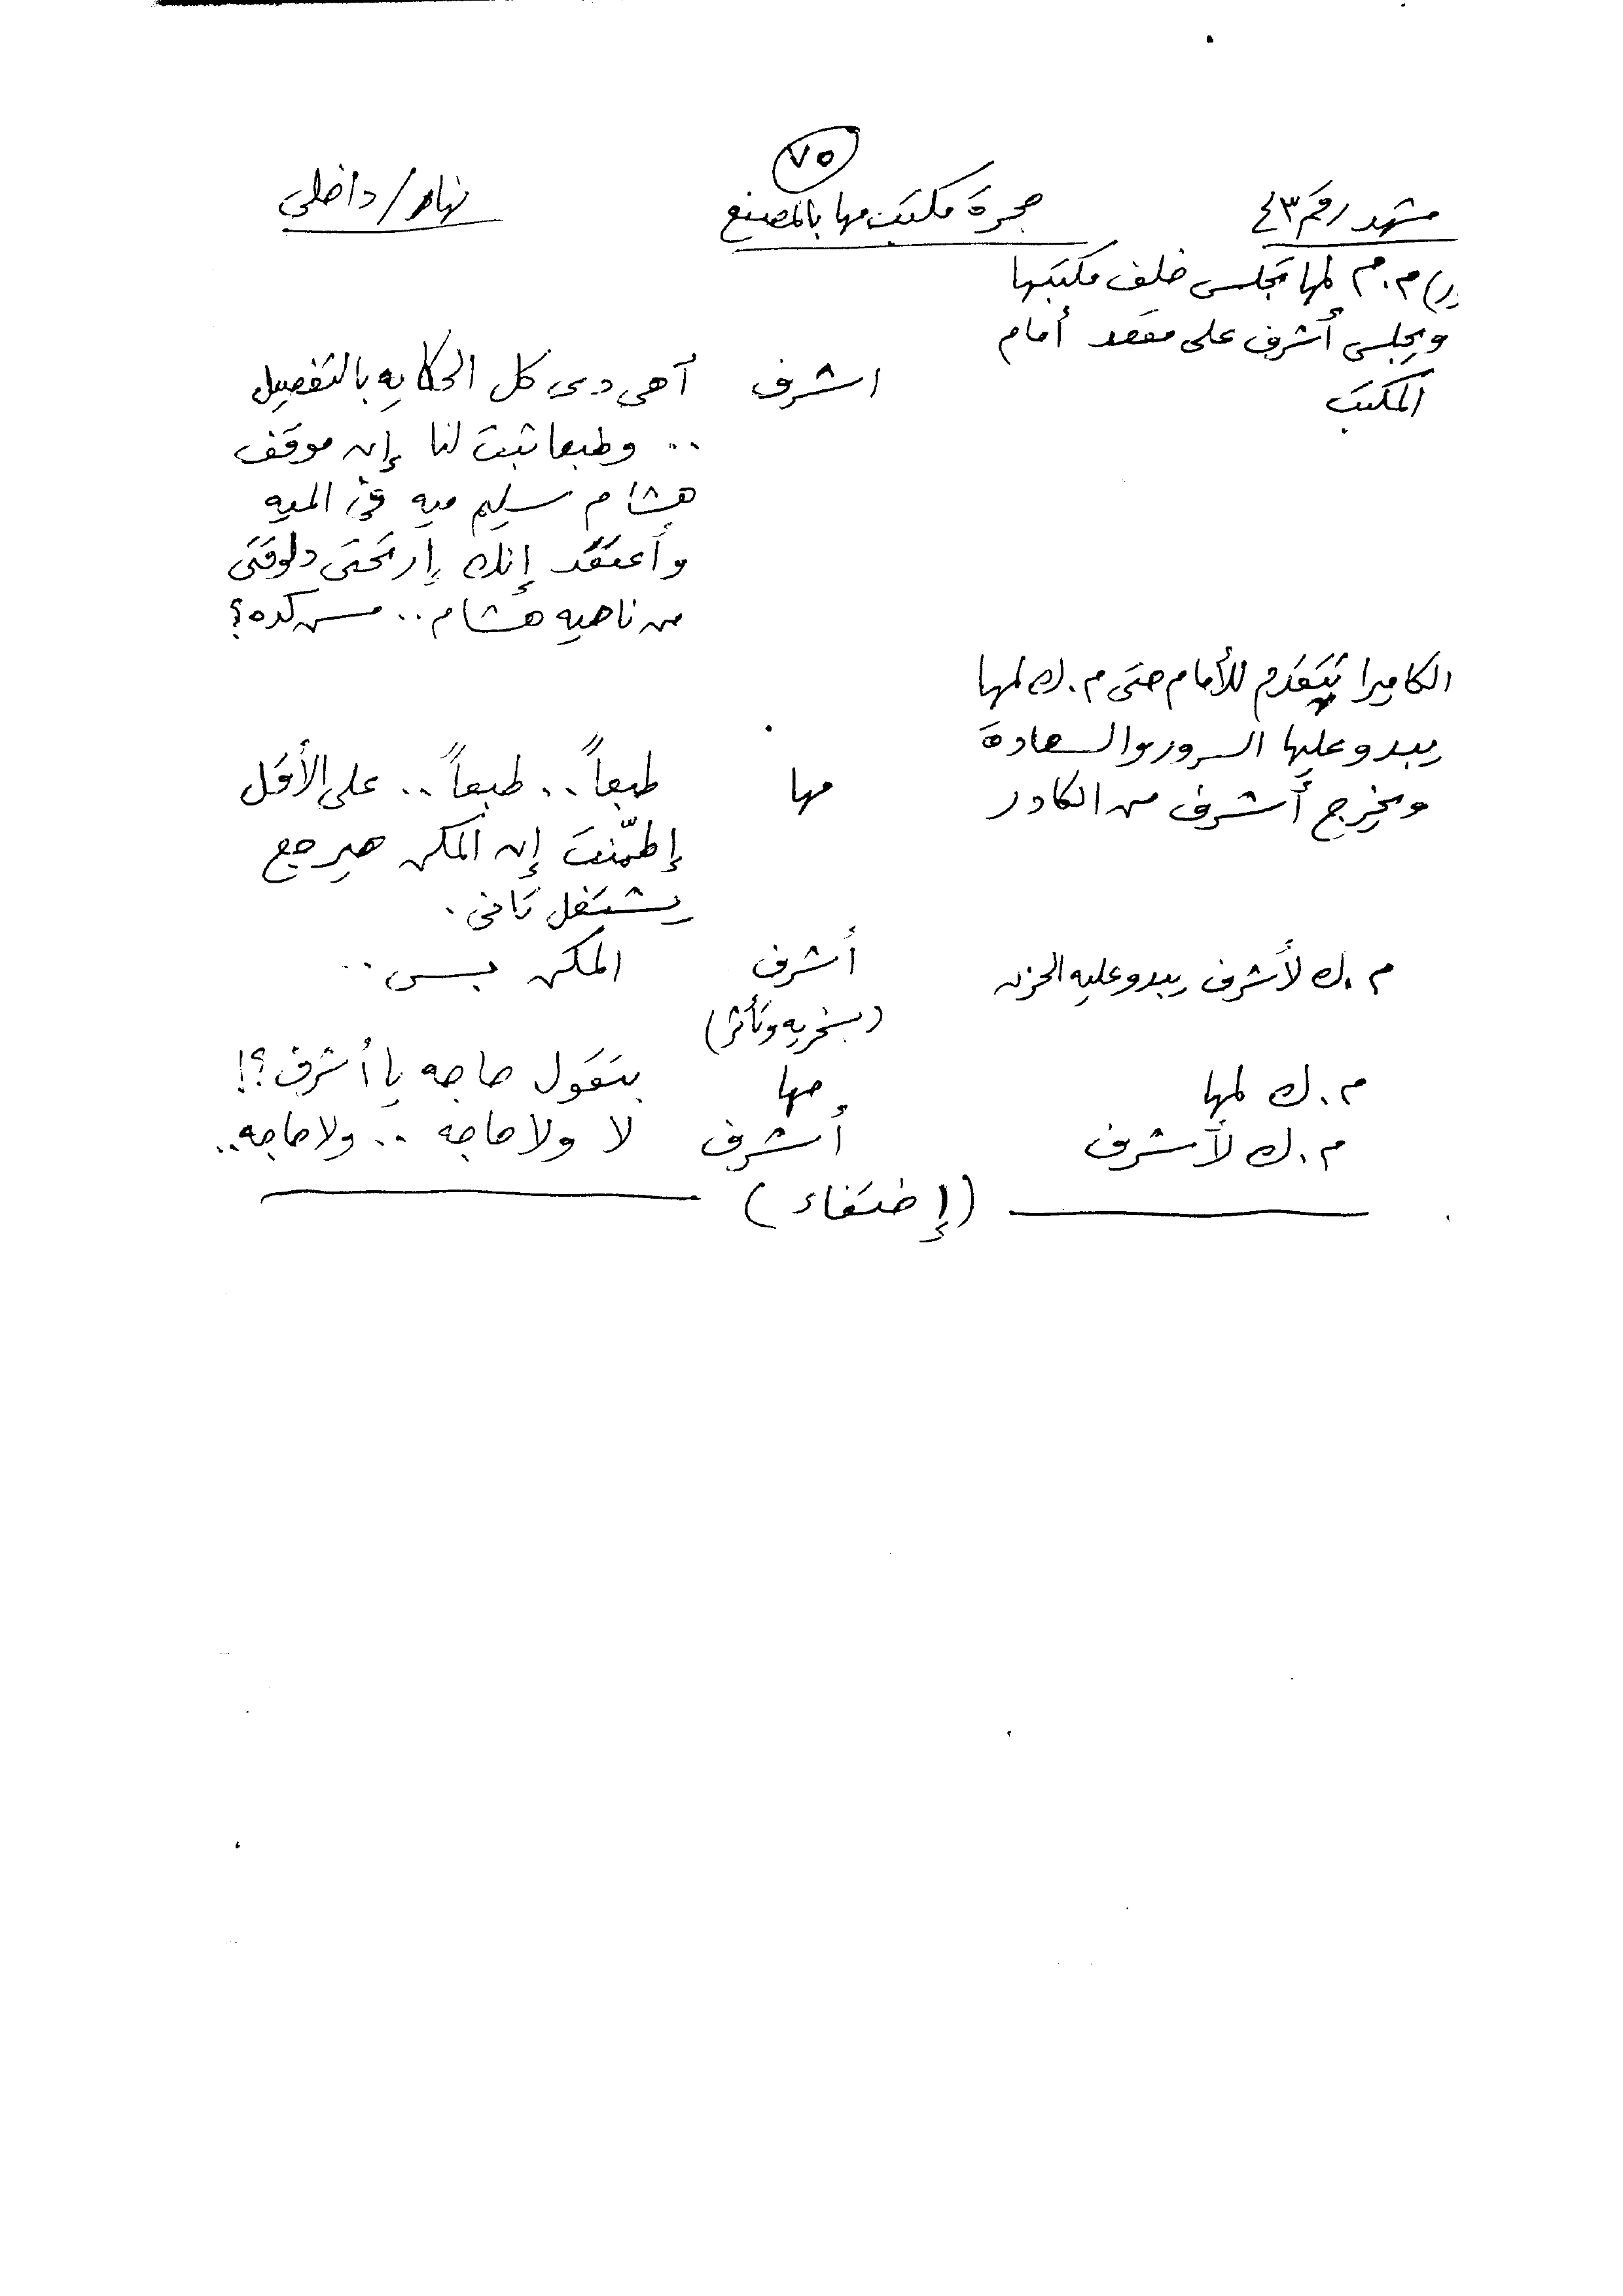 ٧٥
مشهد رقم ٤٣ حجرة مكتب مها بالمصنع نهار/داخلى
م.م لمها تجلس خلف مكتبها
ويجلس أشرف على مقعد أمام
المكتب
اشرف آهى دى كل الحكايه بالتفصيل
.. وطبعا ثبت لنا إن موقف
هشام سليم ميه فى الميه
وأعتقد إنك إرتحتى دلوقتى
من ناحيه هشام.. مس كده؟
الكاميرا تتقدم للأمام حتى م.ك لمها
يبدو عليها السرور والسعادة
ويخرج أشرف من الكادر
مها طبعاً.. طبعاً.. على الأقل
إطمّنت إن المكن هيرجع
يشتغل تانى.
م.ك لأشرف يبدو عليه الحزن أشرف المكن بس..
(بسخريه وتأثر)
م.ك لمها مها بتقول حاجه يا أشرف؟!
م.ك لأشرف أشرف لا ولا حاجه .. ولا حاجه..
(إختفاء)